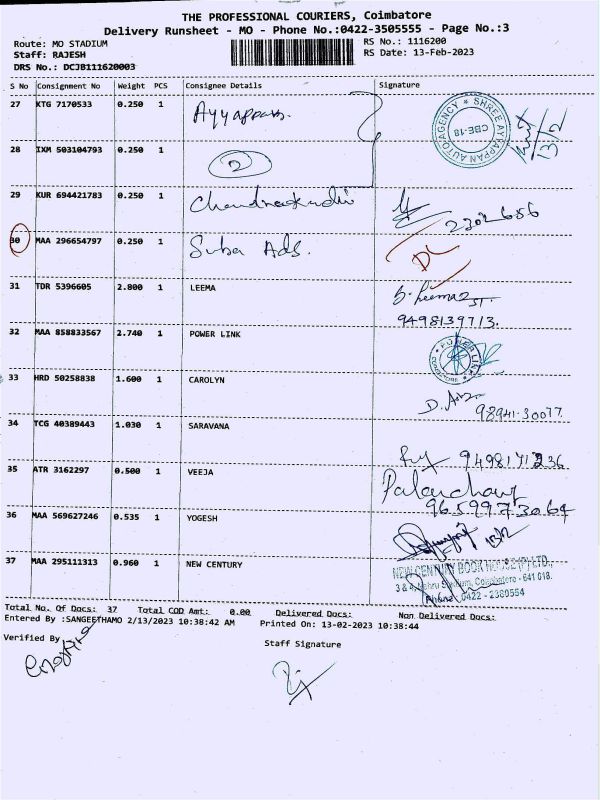 THE PROFESSIONAL COURIERS, Coimbatore
Delivery Runsheet - MO - Phone No.:0422-3505555 - Page No.:3
Route: MO STADIUM
Staff: RAJESH
DRS No.: DCJB111620003
RS No.: 1116200
RS Date: 13-Feb-2023
S No Consignment No Weight PCS Consignee Details Signature
27 KTG 7170533 0.250 1 Ayyappan.
SHREE AYYAPPAN AUTO AGENCY CBE-18
13/2
28 IXM 503104793 0.250 1 2
29 KUR 694421783 0.250 1
30 MAA 296654797 0.250 1 Suba Ads. DL
31 TDR 5396605 2.800 1 LEEMA
9498139713.
32 MAA 858833567 2.740 1 POWER LINK
POWER LINK COIMBATORE
33 HRD 50258838 1.600 1 CAROLYN
98941-30077
34 TCG 40389443 1.030 1 SARAVANA
35 ATR 3162297 0.500 1 VEEJA
36 MAA 569627246 0.535 1 YOGESH
13/2
37 MAA 295111313 0.960 1 NEW CENTURY
NEW CENTURY BOOK HOUSE (P) LTD.,
3 & 4, Nehru Stadium, Coimbatore - 641 018.
Phone: 0422 - 2380554
Total No. Of Docs: 37 Total COD Amt: 0.00 Delivered Docs: Non Delivered Docs:
Entered By :SANGEETHAMO 2/13/2023 10:38:42 AM Printed On: 13-02-2023 10:38:44
Verified By
Staff Signature